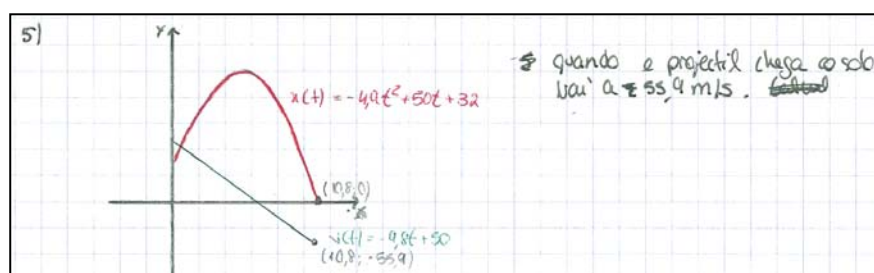 5)
x
x(t) = -4,9t² + 50t + 32
(10,8; 0)
v(t) = -9,8t + 50
(10,8; -55,9)
quando o projectil chega ao solo
vai a 55,9 m/s.